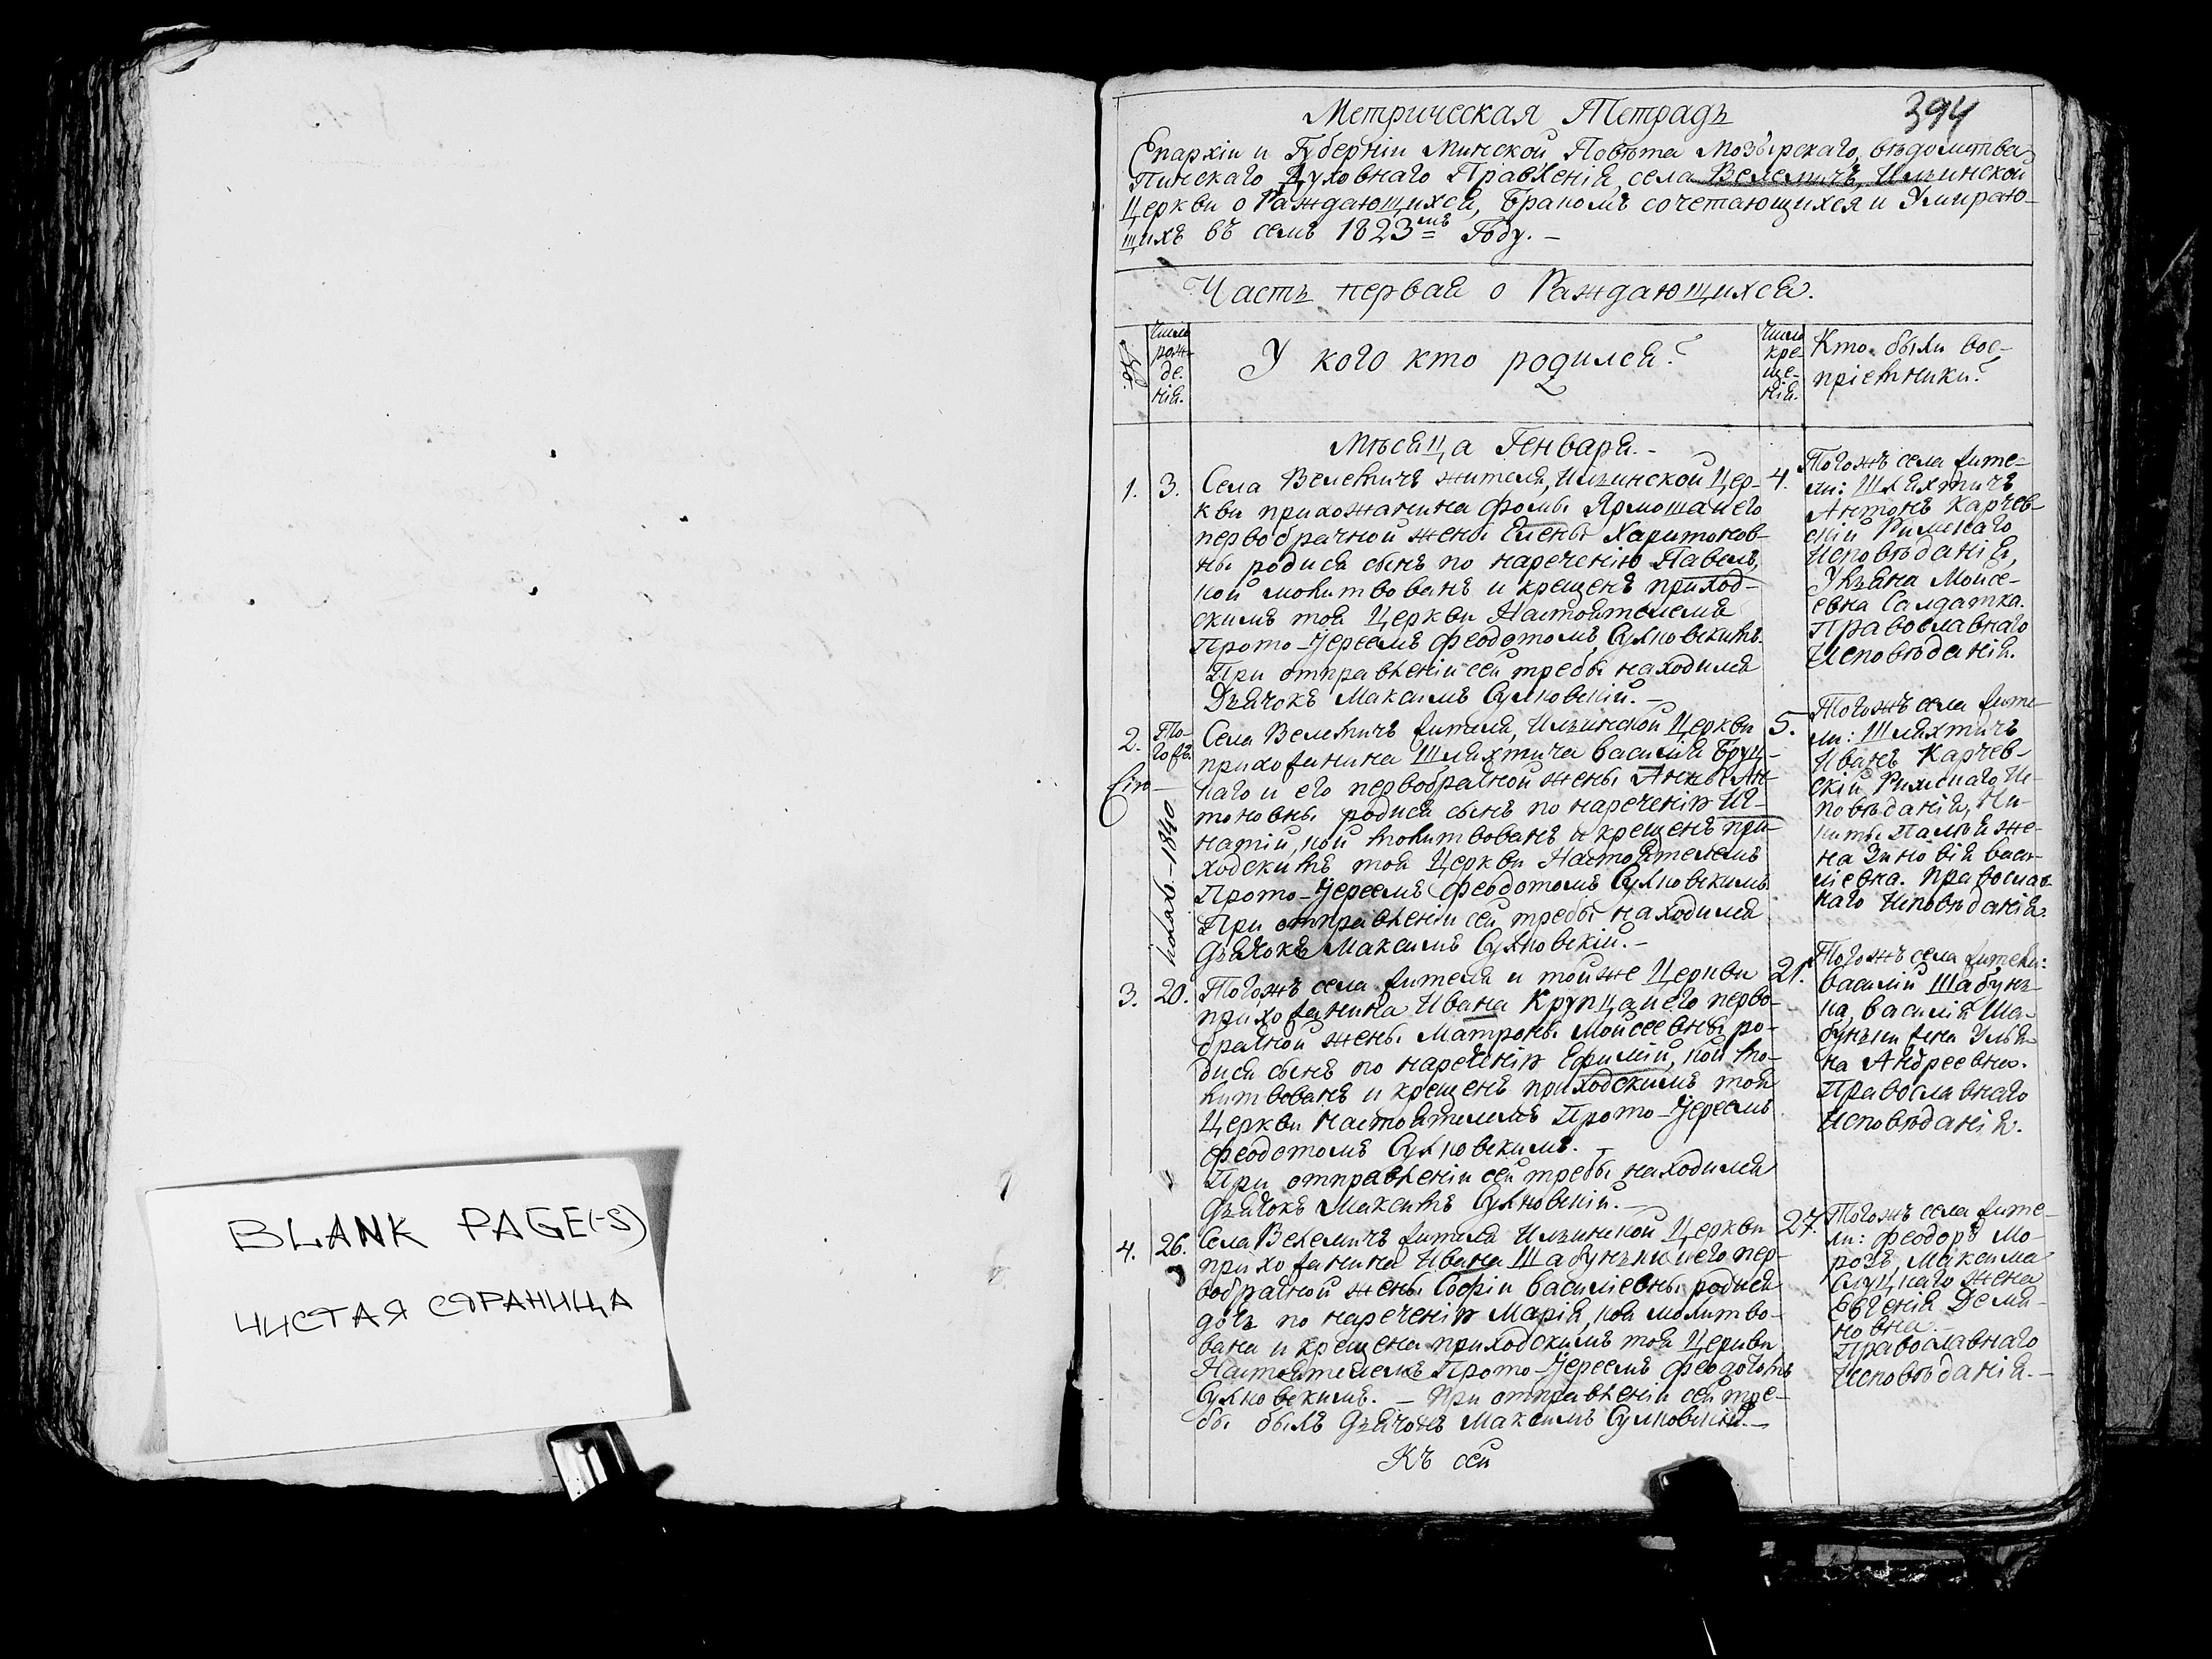 BLANK PAGE(-S)
ЧИСТАЯ СТРАНИЦА
Метрическая Тетрадь
394
Епархіи и Губерніи Минской, Повѣта Мозырскаго, вѣдомства
Пинскаго Духовнаго Правленія, села Велемичъ, Ильинской
Церкви о Раждающихся, Бракомъ сочетающихся и Умираю-
щихъ въ семъ 1823мъ Году. –
Часть первая о Раждающихся.
№.
Число
рож-
де-
нія.
У кого кто родился?
Число
кре-
ще-
нія.
Кто были вос-
пріемники?
Мѣсяца Генваря. –
1. 3.
Села Велемичъ жителя, Ильинской Цер-
кви прихожанина Фомы Ярмоша и его
первобрачной жены Елены Харитонов-
ны родися сынъ по нареченію Павелъ,
кой молитвованъ и крещенъ приход-
скимъ тоя Церкви Настоятелемъ
Прото-Іереемъ Феодотомъ Сулковскимъ.
При отправленіи сей требы находился
Дьячокъ Максимъ Сулковскій. –
4.
Тогожъ села жите-
ли: Шляхтичъ
Антонъ Карчев-
скій Римскаго
Исповѣданія,
Ульяна Моисе-
евна Салдатка.
Православнаго
Исповѣданія.
2. То-
гожъ.
Села Велемичъ жителя, Ильинской Церкви
прихожанина Шляхтича Василія Бруц-
каго и его первобрачной жены Анны Ан-
тоновны родися сынъ по нареченію Иг-
натій, кой молитвованъ и крещенъ при-
ходскимъ тоя Церкви Настоятелемъ
Прото-Іереемъ Феодотомъ Сулковскимъ.
При отправленіи сей требы находился
Дьячокъ Максимъ Сулковскій. –
1840
5.
Тогожъ села жите-
ли: Шляхтичъ
Иванъ Карчев-
скій Римскаго Ис-
повѣданія, Ни-
киты же-
на Зиновія Васи-
ліевна. Православ-
наго Исповѣданія.
3. 20.
Тогожъ села жителя и тойже Церкви
прихожанина Ивана Крупца и его перво-
брачной жены Матроны Моисеевны ро-
дися сынъ по нареченію Ефимій, кой мо-
литвованъ и крещенъ приходскимъ тоя
Церкви Настоятелемъ Прото-Іереемъ
Феодотомъ Сулковскимъ. –
При отправленіи сей требы находился
Дьячокъ Максимъ Сулковскій. –
21.
Тогожъ села жители:
Василій Шабунь-
ка, Василія Ша-
буньки жена Улья-
на Андреевна.
Православнаго
Исповѣданія.
4. 26.
Села Велемичъ жителя Ильинской Церкви
прихожанина Ивана Шабуньки и его пер-
вобрачной жены Софіи Василіевны родися
дочь по нареченію Марія, коя молитво-
вана и крещена приходскимъ тоя Церкви
Настоятелемъ Прото-Іереемъ Феодотомъ
Сулковскимъ. – При отправленіи сей тре-
бы былъ Дьячокъ Максимъ Сулковскій. –
27.
Тогожъ села жите-
ли: Феодоръ Мо-
розъ, Максима
Слуцкаго жена
Евгенія Демья-
новна –
Православнаго
Исповѣданія. –
Къ сей